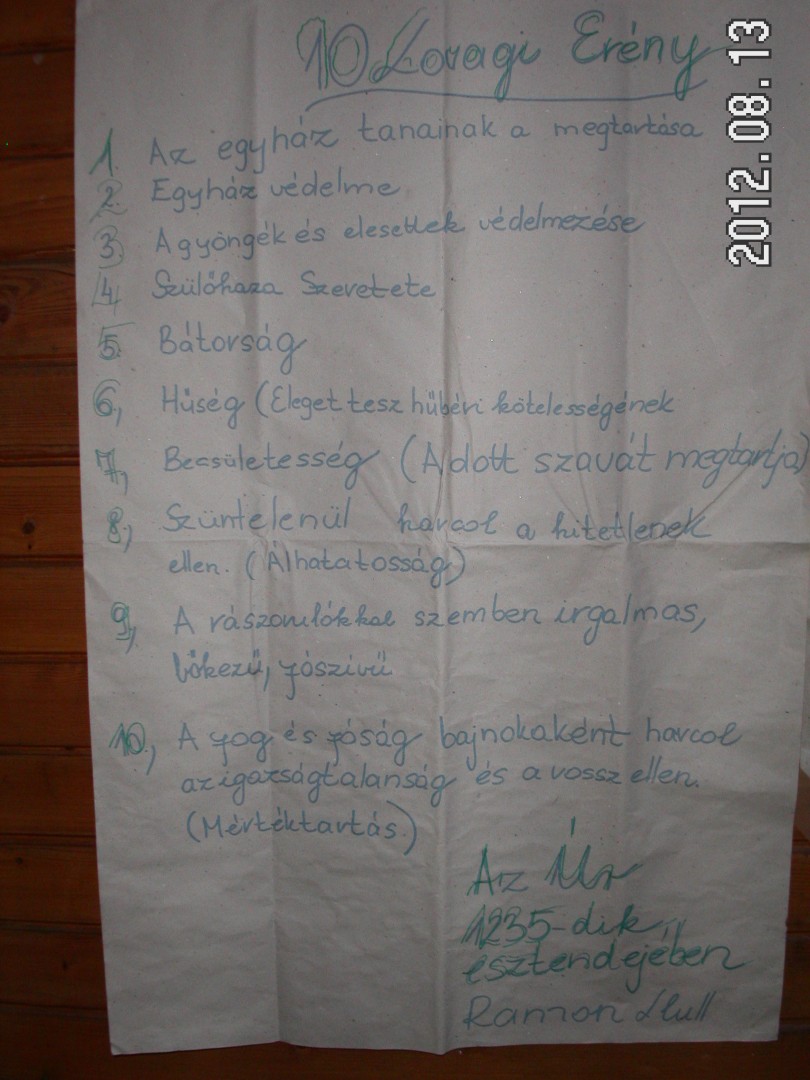 10 Lovagi Erény
1. Az egyház tanainak a megtartása
2. Egyház védelme
3. A gyöngék és elesettek védelmezése
4. Szülőhaza Szeretete
5. Bátorság
6, Hűség (Eleget tesz hűbéri kötelességének
7, Becsületesség (Adott szavát megtartja)
8, Szüntelenül harcol a hitetlenek
ellen. (Álhatatosság)
9, A rászorulókkal szemben irgalmas,
bőkezű, jószívű
10, A jog és jóság bajnokaként harcol
az igazságtalanság és a vossz ellen.
(Mértéktartás.)
Az Úr
1235-dik
esztendejében
Ramon Llull
2012.08.13